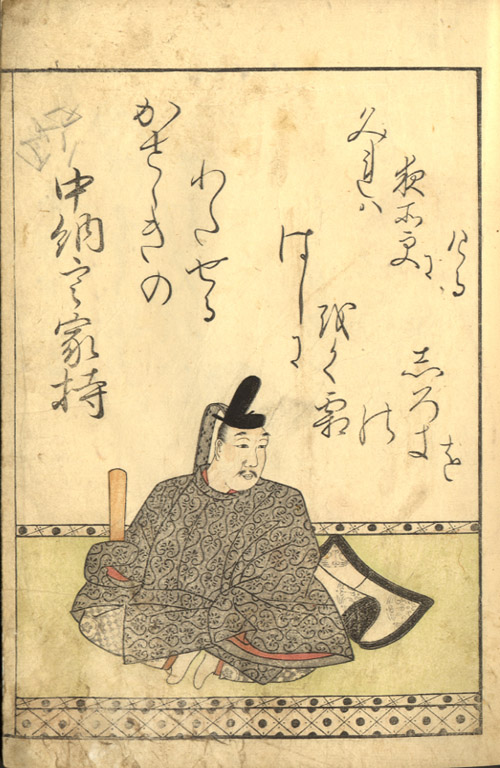 中納言家持
かさゝきの
わたせる
はしに
をく霜
の
しろきを
みれハ
夜そ更に
ける